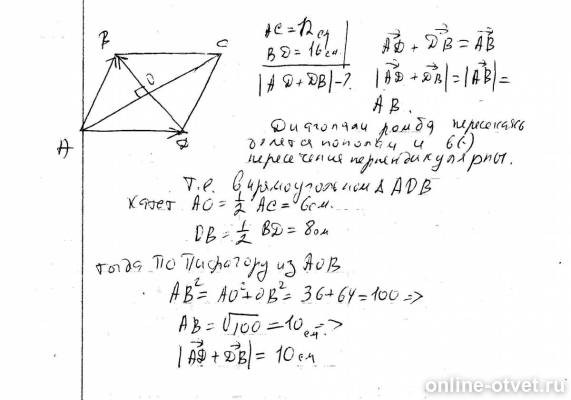 B
C
O
A
D
AC = 12 см
BD = 16 см
|AD + DB| - ?
AD + DB = AB
|AD + DB| = |AB| =
AB.
Диагонали ромба пересекаясь
делятся пополам и в (·)
пересечения перпендикулярны.
т.е. в прямоугольном Δ ADB
катет AO = 1/2 AC = 6 см.
OB = 1/2 BD = 8 см
тогда по Пифагору из AOB
AB² = AO² + OB² = 36 + 64 = 100 =>
AB = √100 = 10 см =>
|AD + DB| = 10 см
online-otvet.ru